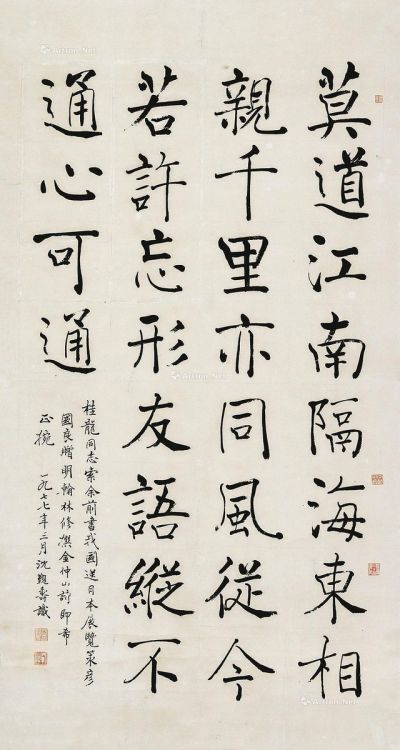 莫道江南隔海東相
親千里亦同風從今
若許忘形友語縱不
通心可通
桂龍同志索余前書我國送日本展覽策彦
國良贈明翰林修撰金仲山詩即希
正捥 一九七七年三月沈覲壽識
Artron.Net